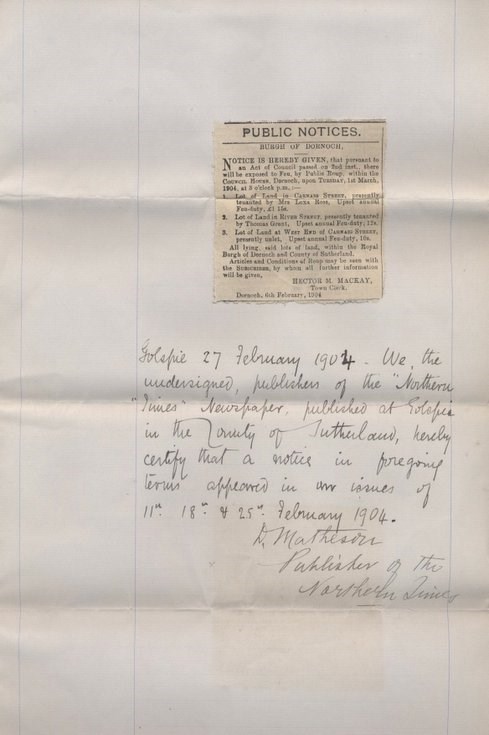 PUBLIC NOTICES.
BURGH OF DORNOCH.
NOTICE IS HEREBY GIVEN, that pursuant to
an Act of Council passed on 2nd inst., there
will be exposed to Feu, by Public Roup, within the
COUNCIL HOUSE, Dornoch, upon TUESDAY, 1st March,
1904, at 3 o'clock p.m.,—
1. Lot of Land in CARNAIG STREET, presently
tenanted by Mrs Luna Ross, Upset annual
Feu-duty, £1 15s.
2. Lot of Land in RIVER STREET, presently tenanted
by Thomas Grant, Upset annual Feu-duty, 12s.
3. Lot of Land at WEST END of CARNAIG STREET,
presently unlet, Upset annual Feu-duty, 10s.
All lying said lots of land, within the Royal
Burgh of Dornoch and County of Sutherland.
Articles and Conditions of Roup may be seen with
the SUBSCRIBER, by whom all further information
will be given,
HECTOR M. MACKAY,
Town Clerk.
Dornoch, 6th February, 1904
Golspie 27 February 1904 - We, the
undersigned, publishers of the "Northern
"Times" Newspaper, published at Golspie
in the County of Sutherland, hereby
certify that a notice in foregoing
terms appeared in our issues of
11th 18th & 25th February 1904.
D. Matheson
Publisher of the
Northern Times